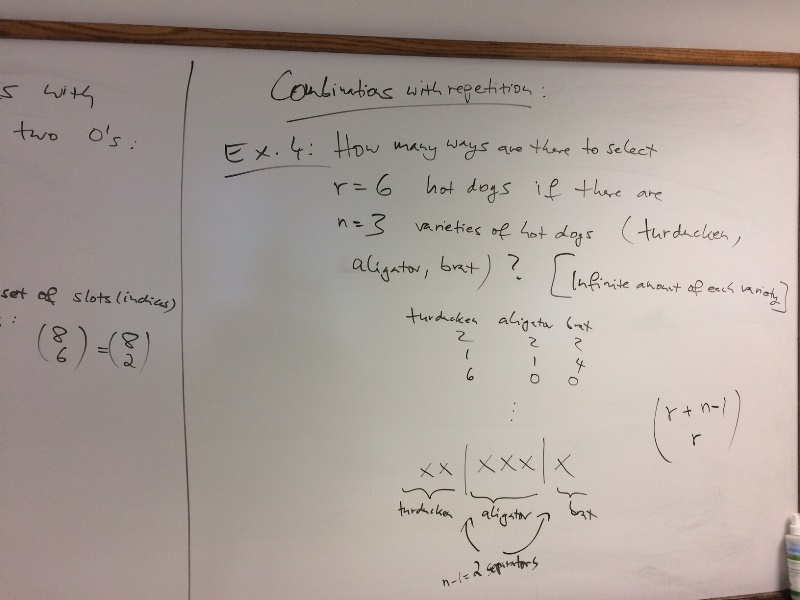 s with
two 0's:
set of slots (indices)
:
(8 6) = (8 2)
Combinations with repetition:
Ex. 4: How many ways are there to select
r=6 hot dogs if there are
n=3 varieties of hot dogs (turducken,
aligator, brat)? [Infinite amount of each variety]
turducken aligator brat
2 2 2
1 1 4
6 0 0
⋮
(r+n-1 r)
xx|xxx|x
turducken aligator brat
n-1=2 separators